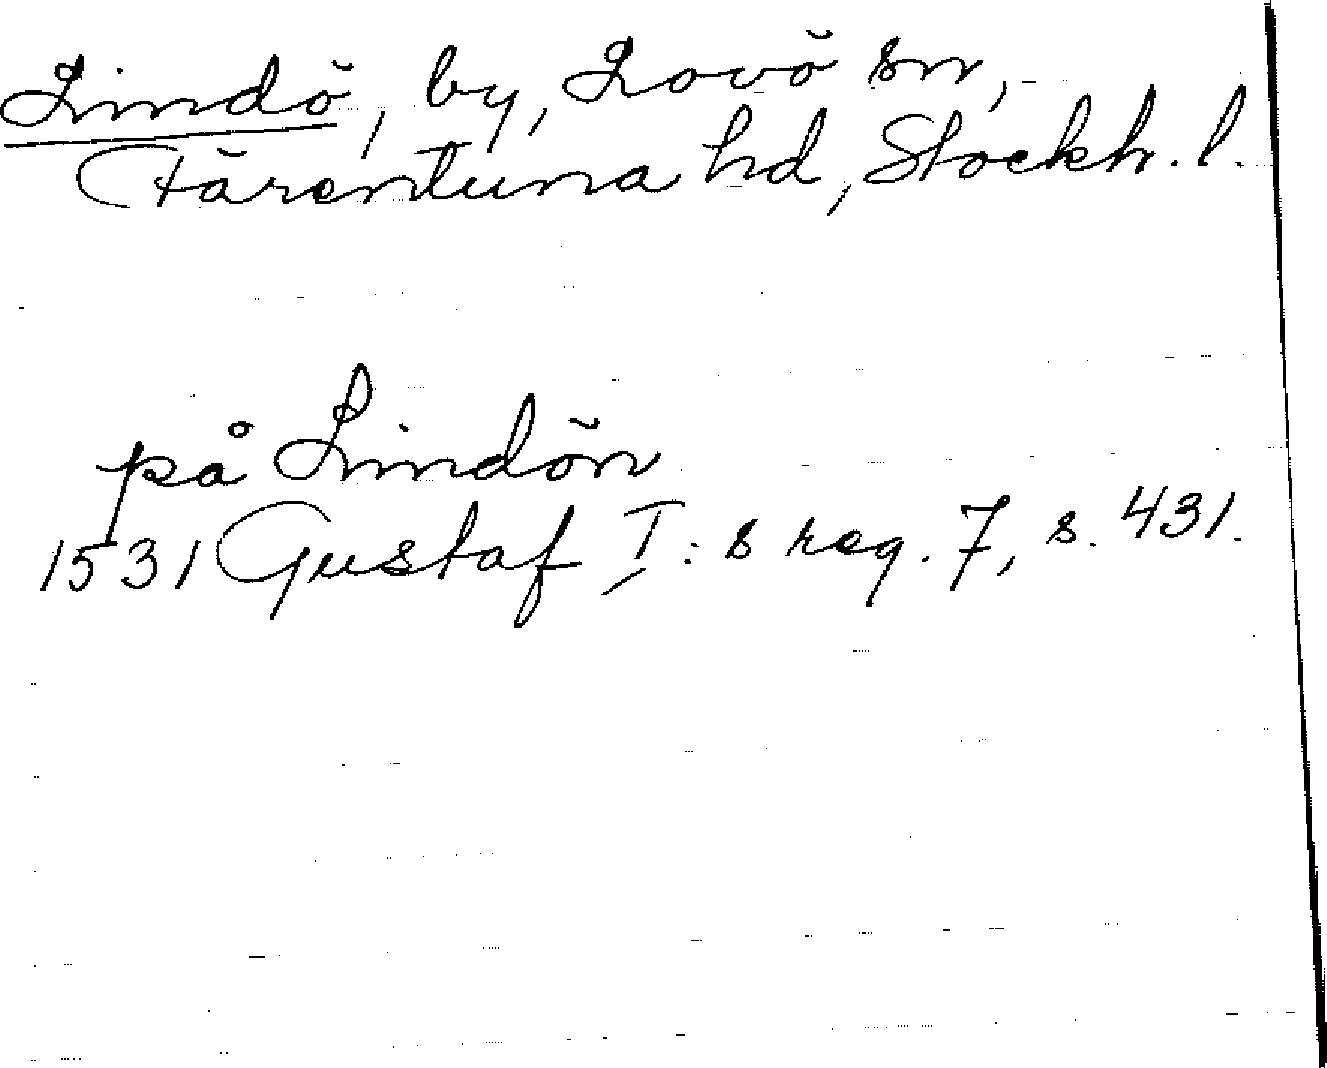 Lindö, by, Lovö sn,
Färentuna hd, Stockh. l.
på Lindön
1531 Gustaf I:s reg. 7, s. 431.